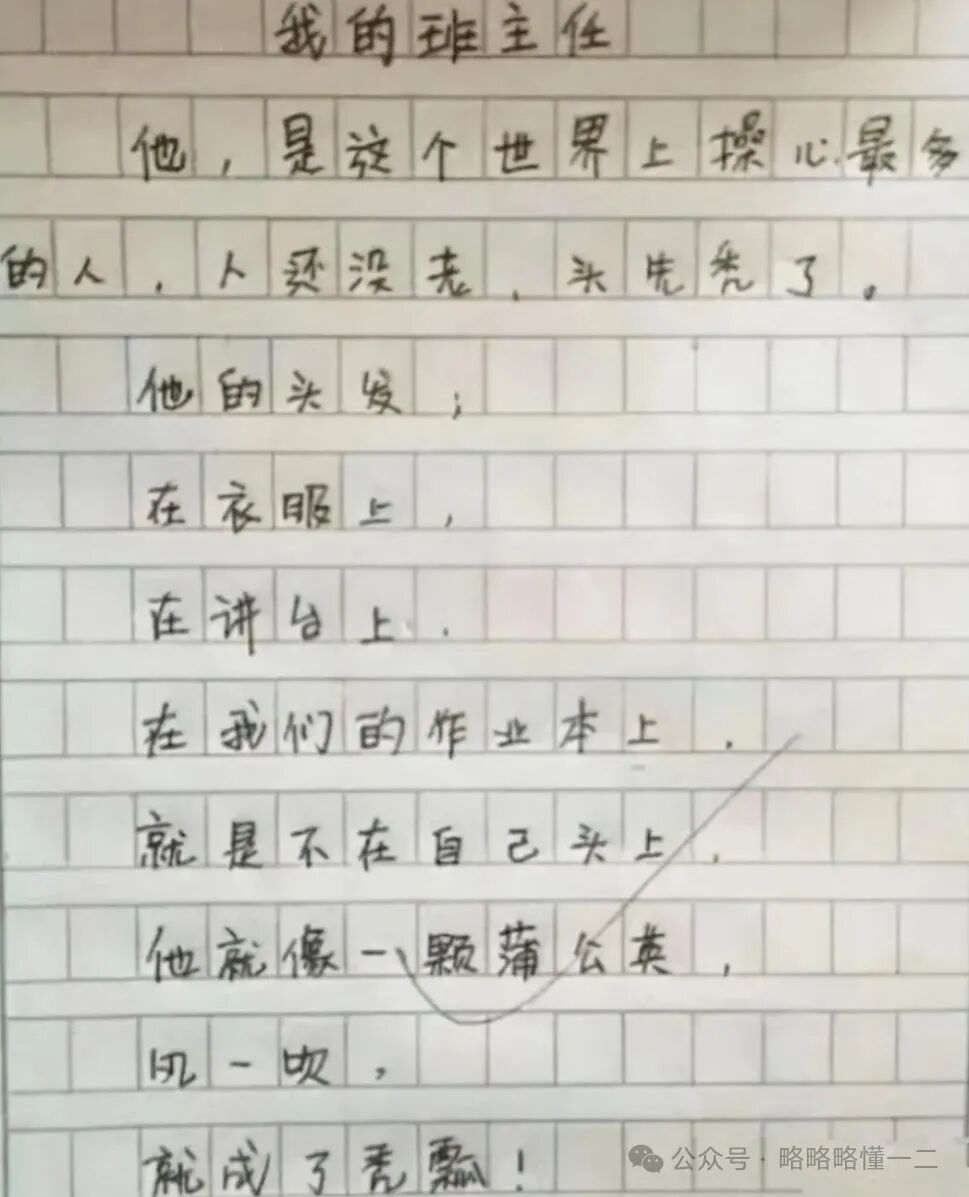 我的班主任
他，是这个世界上操心最多
的人，人还没老，头先秃了。
他的头发；
在衣服上，
在讲台上，
在我们的作业本上，
就是不在自己头上，
他就像一颗蒲公英，
风一吹，
就成了秃瓢！
公众号·略略略懂一二